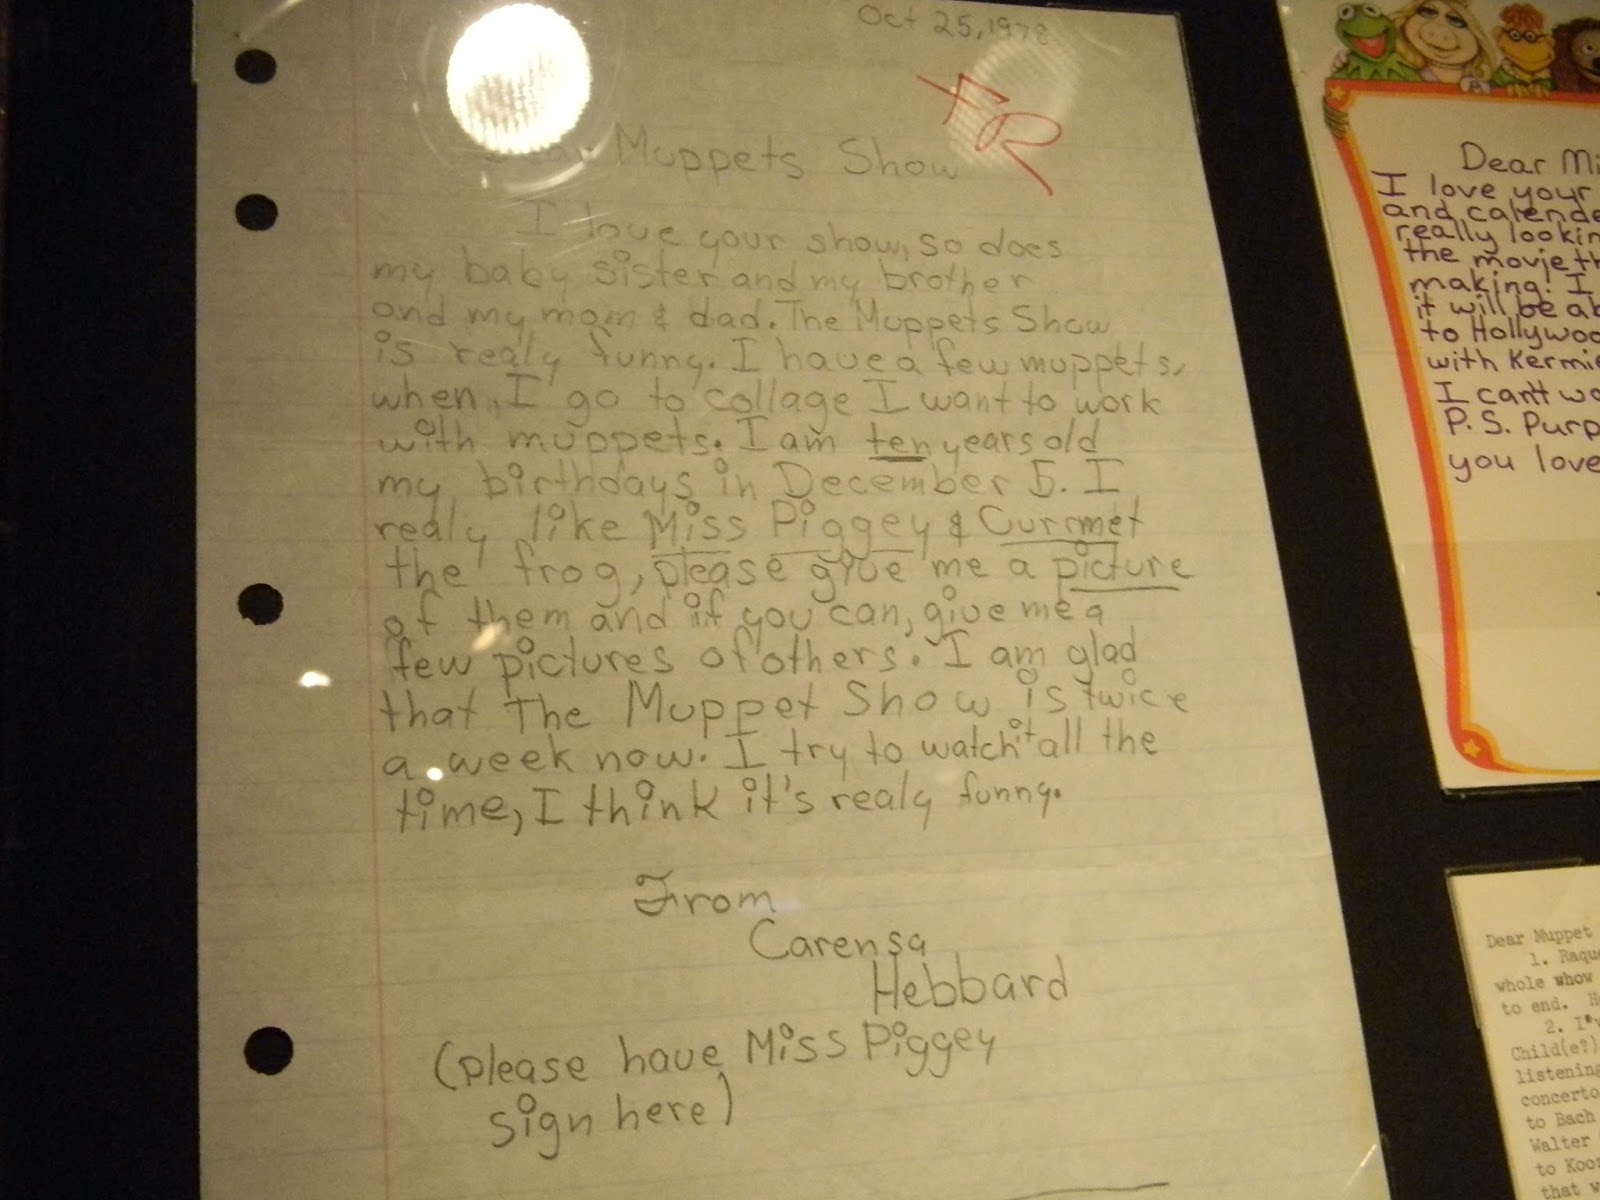 Oct 25, 1978
Dear Muppets Show
I love your show, so does
my baby sister and my brother
and my mom & dad. The Muppets Show
is realy funny. I have a few muppets,
when I go to collage I want to work
with muppets. I am ten years old
my birthdays in December 5. I
realy like Miss Piggey & Curmet
the frog, please give me a picture
of them and if you can, give me a
few pictures of others. I am glad
that The Muppet Show is twice
a week now. I try to watch it all the
time, I think it's realy funny.
From
Carensa
Hebbard
(please have Miss Piggey
sign here)
Dear Mi
I love your
and calende
really lookin
the movie th
making! I
it will be ab
to Hollywoo
with Kermi
I can't wa
P.S. Purp
you love
Dear Muppet
1. Raque
whole whow
to end. H
2. I*v
Child(e?)
listening
concerto
to Bach
Walter
to Kooz
that w